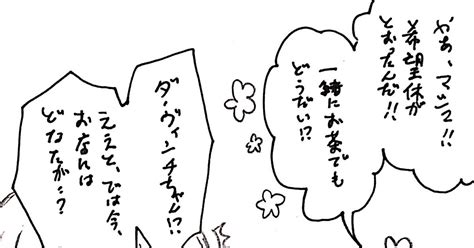 やあ、マシュ!!
希望休が
とおったんだ!!
一緒にお茶でも
どうだい!?
ダ・ヴィンチちゃん!?
ええと、では今、
おなんは
どなたが…?